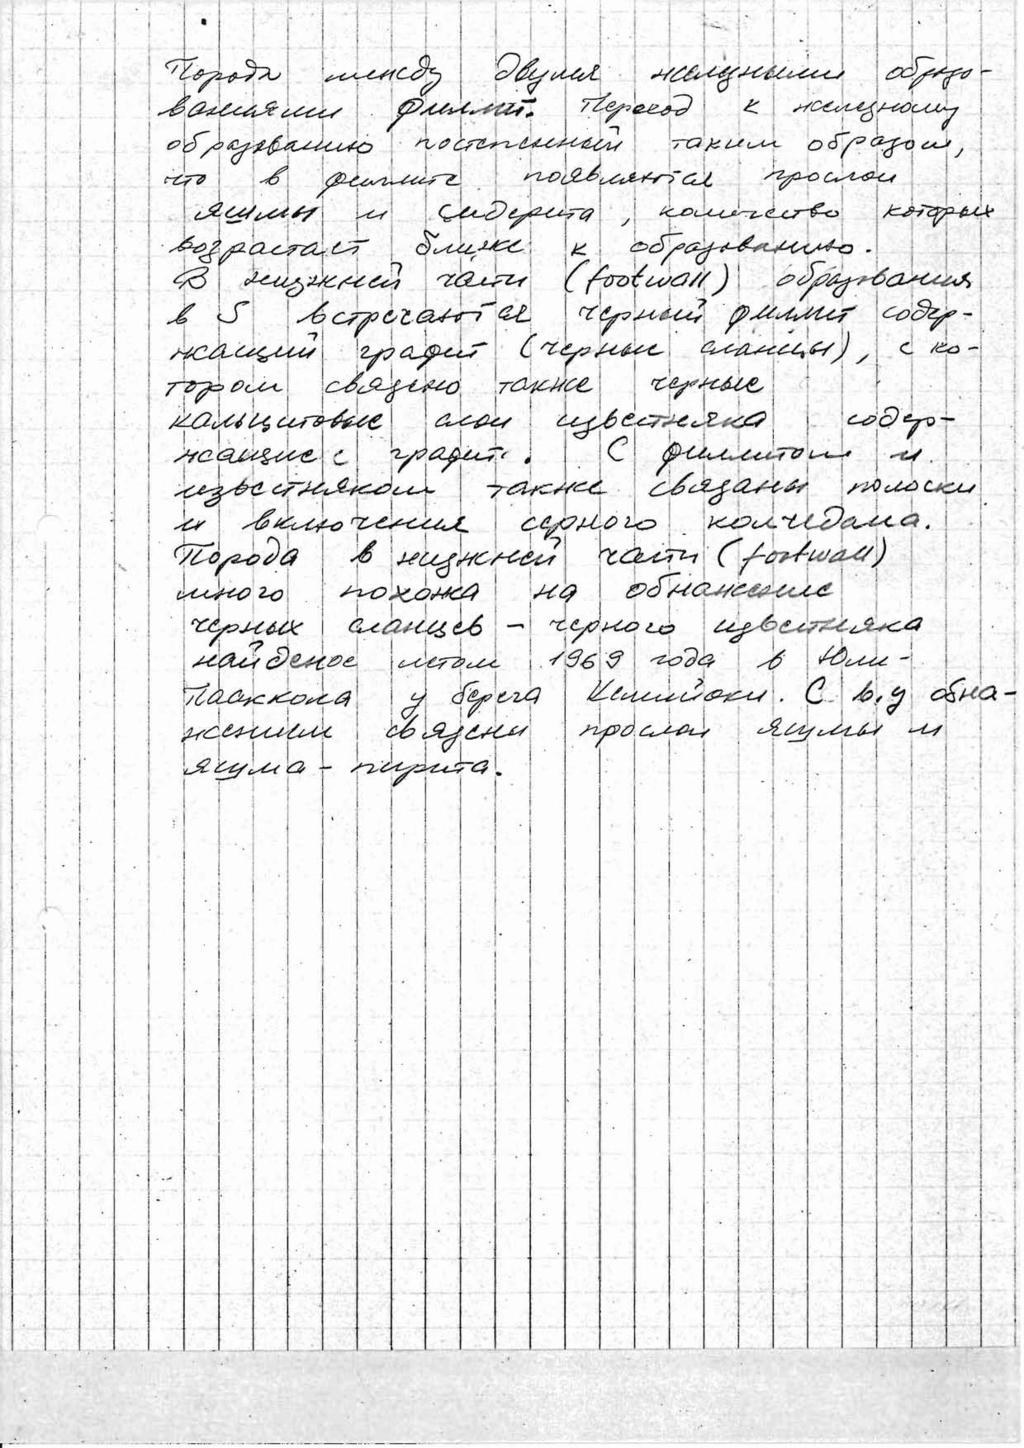 Порода между двумя железными образо-
ваниями филлит. Переход к железному
образованию постепенный таким образом,
что в филлите появляются прослои
яшмы и сидерита, количество которых
возрастает ближе к образованию.
В нижней части (footwall) образования
в S встречаются черный филлит содер-
жащий графит (черные сланцы), с ко-
тором связано также черные
кальцитовые слои известняка содер-
жащие графит. С филлитом и
известняком также связаны полоски
и включения серного колчедана.
Порода в нижней части (footwall)
много похожа на обнажение
черных сланцев - черного известняка
найденое летом 1969 года в Юли-
Пааккола у берега Кемийоки. С в.у обна-
жением связени прослои яшмы и
яшма - пирита.